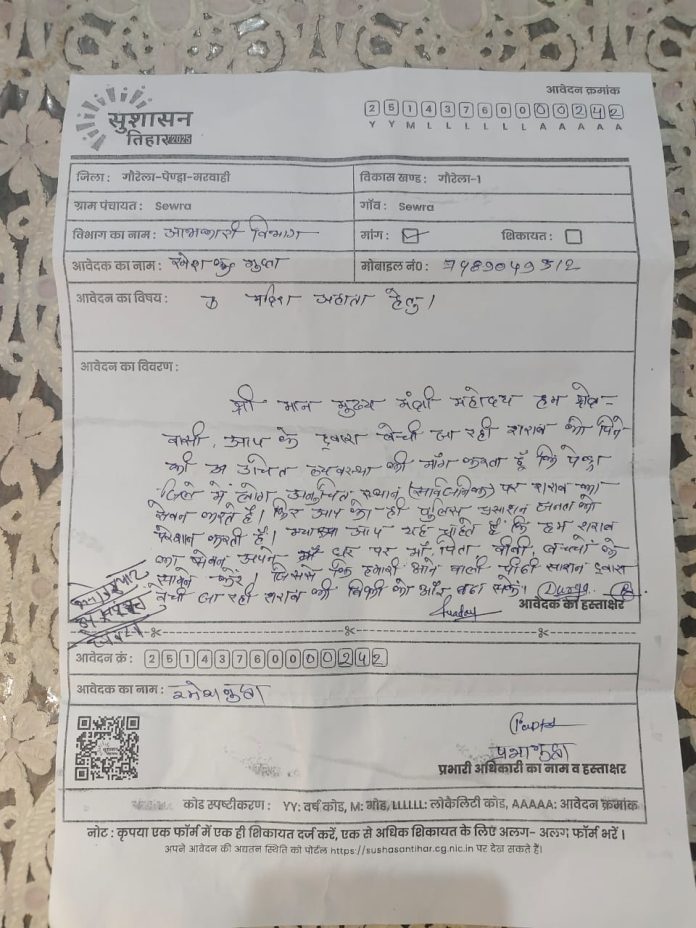 सुशासन
तिहार 2025
आवेदन क्रमांक
2 5 1 4 3 7 6 0 0 0 0 2 4 2
Y Y M L L L L L L A A A A A
जिला : गौरेला-पेण्ड्रा-मरवाही
विकास खण्ड : गौरेला-1
ग्राम पंचायत : Sewra
गाँव : Sewra
विभाग का नाम : आबकारी विभाग
मांग :
शिकायत :
आवेदक का नाम : रमेश गुप्ता
मोबाइल नं0 :
आवेदन का विषय : मदिरा अहाता हेतु।
आवेदन का विवरण :
श्री मान मुख्य मंत्री महोदय हम क्षेत्र-
वासी, आप के द्वारा बेची जा रही शराब को पिने
की उचित व्यवस्था की माँग करता हूँ कि पेन्ड्रा
जिले में लोग अनुचित स्थान (सार्वजनिक) पर शराब का
सेवन करते हैं। फिर आप की ही पुलिस प्रसाशन जनता को
परेशान करती हैं। क्या आप यह चाहते हैं कि हम शराब
का सेवन अपने घर पर माँ, पिता बीवी, बच्चों के
सामने करें। जिससे हमारी आने वाली पीढ़ी साशन द्वारा
बेची जा रही शराब की बिक्री को और बढ़ा सकें।
आवेदक का हस्ताक्षर
आवेदन क्रं : 2 5 1 4 3 7 6 0 0 0 0 2 4 2
आवेदक का नाम : रमेश गुप्ता
सुशासन
प्रभारी अधिकारी का नाम व हस्ताक्षर
कोड स्पष्टीकरण : YY: वर्ष कोड, M: मोड, LLLLLL: लोकैलिटी कोड, AAAAA: आवेदन क्रमांक
नोट : कृपया एक फॉर्म में एक ही शिकायत दर्ज करें, एक से अधिक शिकायत के लिए अलग- अलग फॉर्म भरें ।
अपने आवेदन की अद्यतन स्थिति को पोर्टल https://sushasantihar.cg.nic.in पर देख सकते हैं।